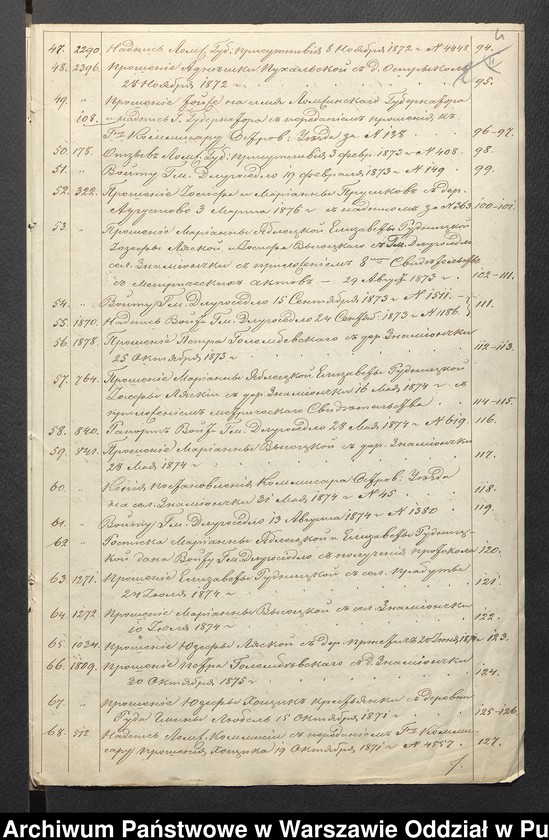 47. 2290. Надпись Ломж. Губ: Присутствия 8 Ноября 1872 г N 4448. 94.
48. 2396. Прошение Пухальской съ д.
28 Ноября 1872 г 95.
49. " Прошение на имя Ломжинскаго Губернатора
108. и надпись Г. Губернатора съ передачею прошения къ
Гну Коммисару Остров: Уѣзда за N 128 96-97.
50. 178. Отзывъ Ломж. Губ: Присутствия 3 февр. 1873 г N 408. 98.
51. " Войту Гм. Длугоседло 19 февраля 1873 г N 149. 99.
52. 322. Прошение Іосифа и Марианны съ дер.
3 Марта 1876 г съ надписью за N 363. 100-101.
53. " Прошение Марианны Яблецкой Елизаветы Гудницкой
Іозефы Ляской и Іосифа Высоцкаго Гм. Длугоседло
сел. Знаміончки съ приложеніемъ 8
съ Метрическихъ актовъ - 29 Август 1873 г 102-111.
54. " Войту Гм. Длугоседло 15 Сентября 1873 г N 1511. 111.
55. 1870. Надпись Войта Гм. Длугоседло 24 Сентяб. 1873 г N 1186.
56. 1878. Прошение Петра Голембевскаго съ дер. Знаміончки
25 Октября 1873 г 112-113.
57. 764. Прошение Марианны Яблецкой, Елизаветы Гудницкой
Іосефы Ляски съ дер. Знаміончки 16 Мая 1874 г съ
приложеніемъ метрическаго Свидѣтельства 114-115.
58. 840. Рапортъ Войта Гм. Длугоседло 28 Мая 1874 г N 619. 116.
59. 841. Прошение Марианны Высоцкой съ дер. Знаміончки
28 Мая 1874 г 117.
60. " Копія постановления Коммисара Остров. Уѣзда
на сел. Знаміончки 31 Мая 1874 г N 45 118.
61. " Войту Гм. Длугоседло 13 Августа 1874 г N 1380 119.
62. " Росписка Марианны Яблецкой и Елизаветы Гудниц-
кой дана Войту Гм. Длугоседло съ получения протокола 120.
63. 1271. Прошение Елизаветы Гудницкой съ сел.
24 Іюля 1874 г 121.
64. 1272 Прошение Марианны Высоцкой съ сел. Знаміончки
Іюля 1874 г 122.
65. 1024. Прошение Юзефы Ляской съ дер. Іюня 1874 г 123.
66. 1809. Прошение Петра Голембевскаго съ д. Знаміончки
30 Октября 1875 г 124.
67. " Прошение Юзефы Хощикъ крестьянки съ деревни
15 Октября 1871 г 125-126.
68. Надпись Ломж. Коммисіи съ передачею Гну Комми-
сару прошения Хощика 19 Октября 1871 г N 4557. 127.
Archiwum Państwowe w Warszawie Oddział w Pu